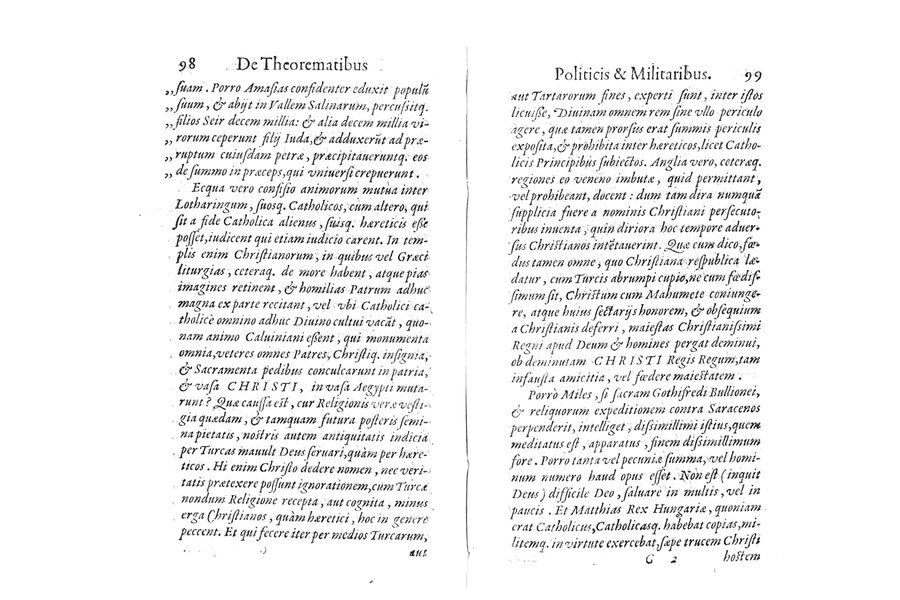 98 De Theorematibus
„ ſuam. Porro Amaſias confidenter eduxit populū
„ ſuum, & abijt in Vallem Salinarum, percuſsitq.
„ filios Seir decem millia: & alia decem millia vi-
„ rorum ceperunt filij Iuda, & adduxerūt ad præ-
„ ruptum cuiuſdam petræ, præcipitaueruntq. eos
„ de ſummo in præceps, qui vniuerſi crepuerunt.
Ecqua vero conſiſio animorum mutua inter
Lotharingum, ſuosq. Catholicos, cum altero, qui
ſit a fide Catholica alienus, ſuisq. hæreticis eſſe
poſſet, iudicent qui etiam iudicio carent. In tem-
plis enim Chriſtianorum, in quibus vel Græci
liturgias, ceteraq. de more habent, atque pias
imagines retinent, & homilias Patrum adhuc
magna ex parte recitant, vel vbi Catholici ca-
tholice omnino adhuc Diuino cultui vacāt, quo-
nam animo Caluiniani eſſent, qui monumenta
omnia, veteres omnes Patres, Chriſtiq. inſignia,
& Sacramenta pedibus conculcarunt in patria,
& vaſa CHRISTI, in vaſa Aegypti muta-
runt? Quæ cauſſa eſt, cur Religionis veræ veſti-
gia quædam, & tamquam futura poſteris ſemi-
na pietatis, noſtris autem antiquitatis indicia
per Turcas mauult Deus ſeruari, quàm per hære-
ticos. Hi enim Chriſto dedere nomen, nec veri-
tatis prætexere poſſunt ignorationem, cum Turcæ
nondum Religione recepta, aut cognita, minus
erga Chriſtianos, quàm hæretici, hoc in genere
peccent. Et qui fecere iter per medios Turcarum,
aut
Politicis & Militaribus. 99
aut Tartarorum fines, experti ſunt, inter iſtos
licuiſſe, Diuinam omnem rem ſine vllo periculo
agere, quæ tamen prorſus erat ſummis periculis
expoſita, & prohibita inter hæreticos, licet Catho-
licis Principibus ſubiectos. Anglia vero, ceteræq.
regiones eo veneno imbutæ, quid permittant,
vel prohibeant, docent: dum tam dira numquā
ſupplicia fuere a nominis Chriſtiani perſecuto-
ribus inuenta, quin diriora hoc tempore aduer-
ſus Chriſtianos intētauerint. Quæ cum dico, fœ-
dus tamen omne, quo Chriſtiana reſpublica læ-
datur, cum Turcis abrumpi cupio, ne cum fœdiſ-
ſimum ſit, Chriſtum cum Mahumete coniunge-
re, atque huius ſectarijs honorem, & obſequium
a Chriſtianis deferri, maieſtas Chriſtianiſsimi
Regni apud Deum & homines pergat deminui,
ob deminutam CHRISTI Regis Regum, tam
infauſta amicitia, vel fœdere maieſtatem.
Porro Miles, ſi ſacram Gothifredi Bullionei,
& reliquorum expeditionem contra Saracenos
perpenderit, intelliget, diſsimillimi iſtius, quem
meditatus eſt, apparatus, finem diſsimillimum
fore. Porro tanta vel pecuniæ ſumma, vel homi-
num numero haud opus eſſet. Non eſt (inquit
Deus) difficile Deo, ſaluare in multis, vel in
paucis. Et Matthias Rex Hungariæ, quoniam
erat Catholicus, Catholicasq. habebat copias, mi-
litemq. in virtute exercebat, ſæpe trucem Chriſti
G 2 hoſtem